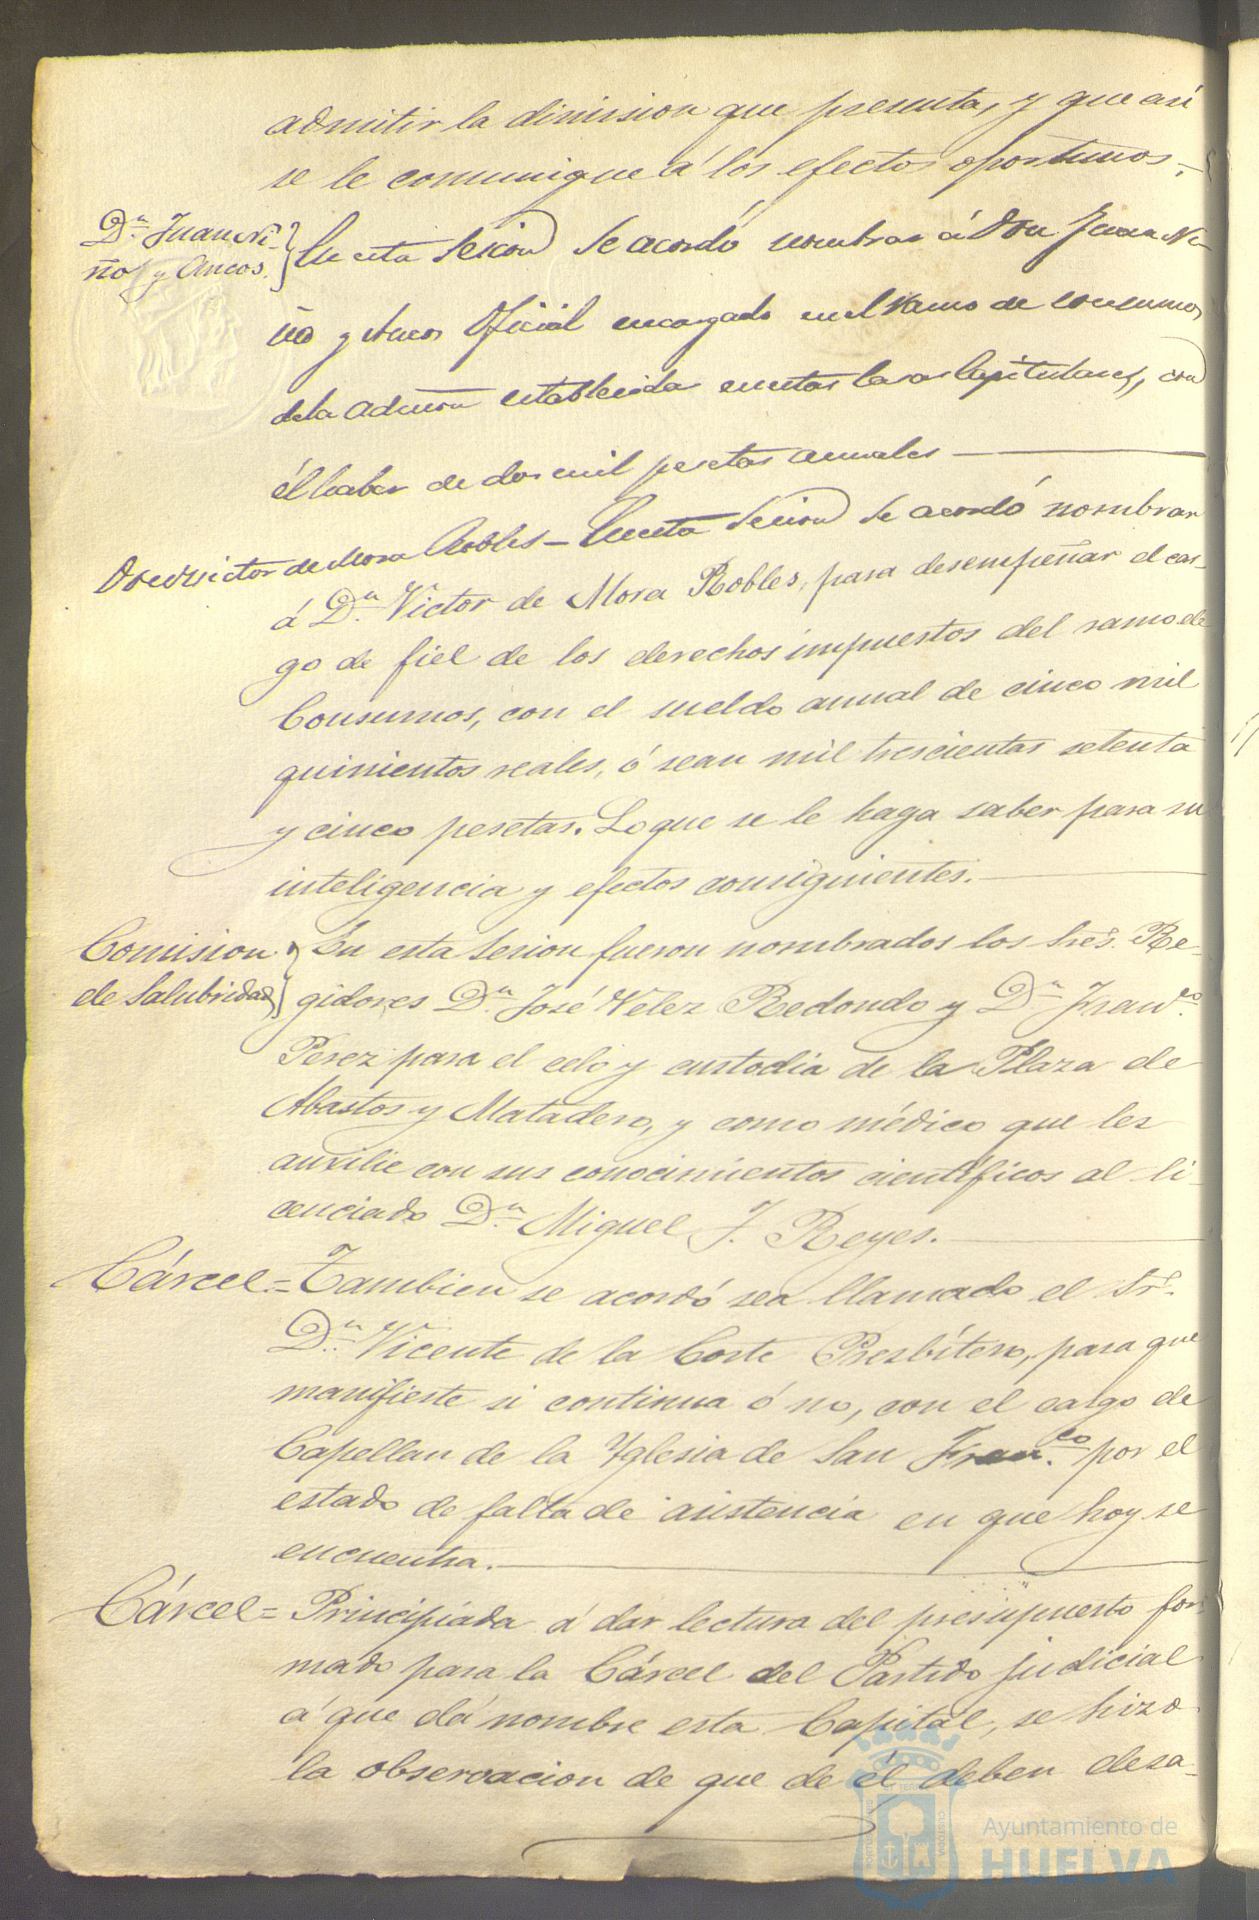 admitir la dimision que presenta, y que asi
se le comunique á los efectos oportunos.-
Dn. Juan Ni-
ño y Ancos.
En esta Sesion se acordó nombrar á Don Juan Ni-
ño y Ancos Oficial encargado en el Ramo de consumos
de la admon establecida en estas Casas Capitulares, con
él haber de dos mil pesetas anuales
Don Victor de Mora Robles - En esta Sesion se acordó nombrar
á Dn. Victor de Mora Robles, para desempeñar el car-
go de fiel de los derechos impuestos del ramo de
Consumos, con el sueldo anual de cinco mil
quinientos reales, ó sean mil trescientas setenta
y cinco pesetas. Lo que se le haga saber para su
inteligencia y efectos consiguientes.
Comision
de Salubridad
En esta Sesion fueron nombrados los Sres. Re-
gidores Dn. José Velez Redondo y Dn. Franco.
Perez para el celo y custodia de la Plaza de
Abastos y Matadero, y como médico que les
auxilie con sus conocimientos cientificos al li-
cenciado Dn. Miguel J. Reyes.
Cárcel = Tambien se acordó sea llamado el Sr.
Dn. Vicente de la Corte Presbítero, para que
manifieste si continua ó no, con el cargo de
Capellan de la Yglesia de San Franco. por el
estado de falta de asistencia en que hoy se
encuentra.
Cárcel = Principiada á dar lectura del presupuesto for-
mado para la Cárcel del Partido judicial
á que dá nombre esta Capital, se hizo
la observacion de que de él deben desa-
Ayuntamiento de
HUELVA